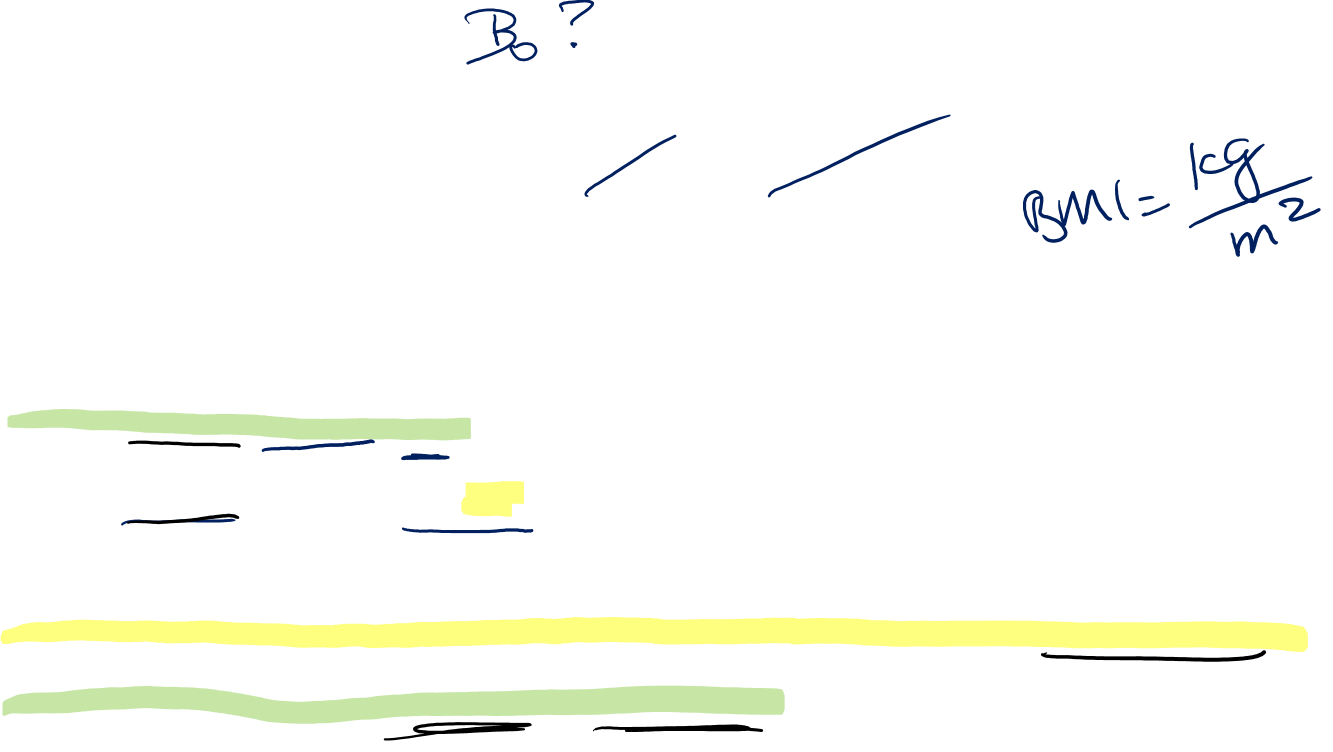 B₀ ?
BMI = kg/m²